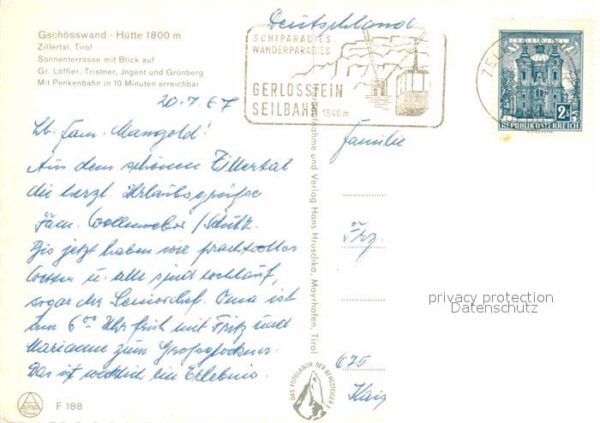 Gschösswand - Hütte 1800 m
Zillertal, Tirol
Sonnenterrasse mit Blick auf
Gr. Löffler, Tristner, Jngent und Grünberg
Mit Penkenbahn in 10 Minuten erreichbar
20.7.67
Lb. Fam. Mangold!
Aus dem schönen Zillertal
die herzl. Urlaubsgrüße
Fam. Wollenweber / Schütz.
Bis jetzt haben wir prachtvolles
Wetter u. alle sind wohlauf,
sogar der Seniorchef. Oma ist
um 6 00 Uhr früh mit Fritz und
Marianne zum Großglockner.
Das ist wirklich ein Erlebnis.
F 188
Deutschland
SCHIPARADIES
WANDERPARADIES
GERLOSSTEIN
SEILBAHN 1640 m
2S
REPUBLIK ÖSTERREICH
nahme und Verlag Hans Hruschka, Mayrhofen, Tirol
Familie
675
DAS FOTOLABOR DER BERGSTEIGER
privacy protection
Datenschutz